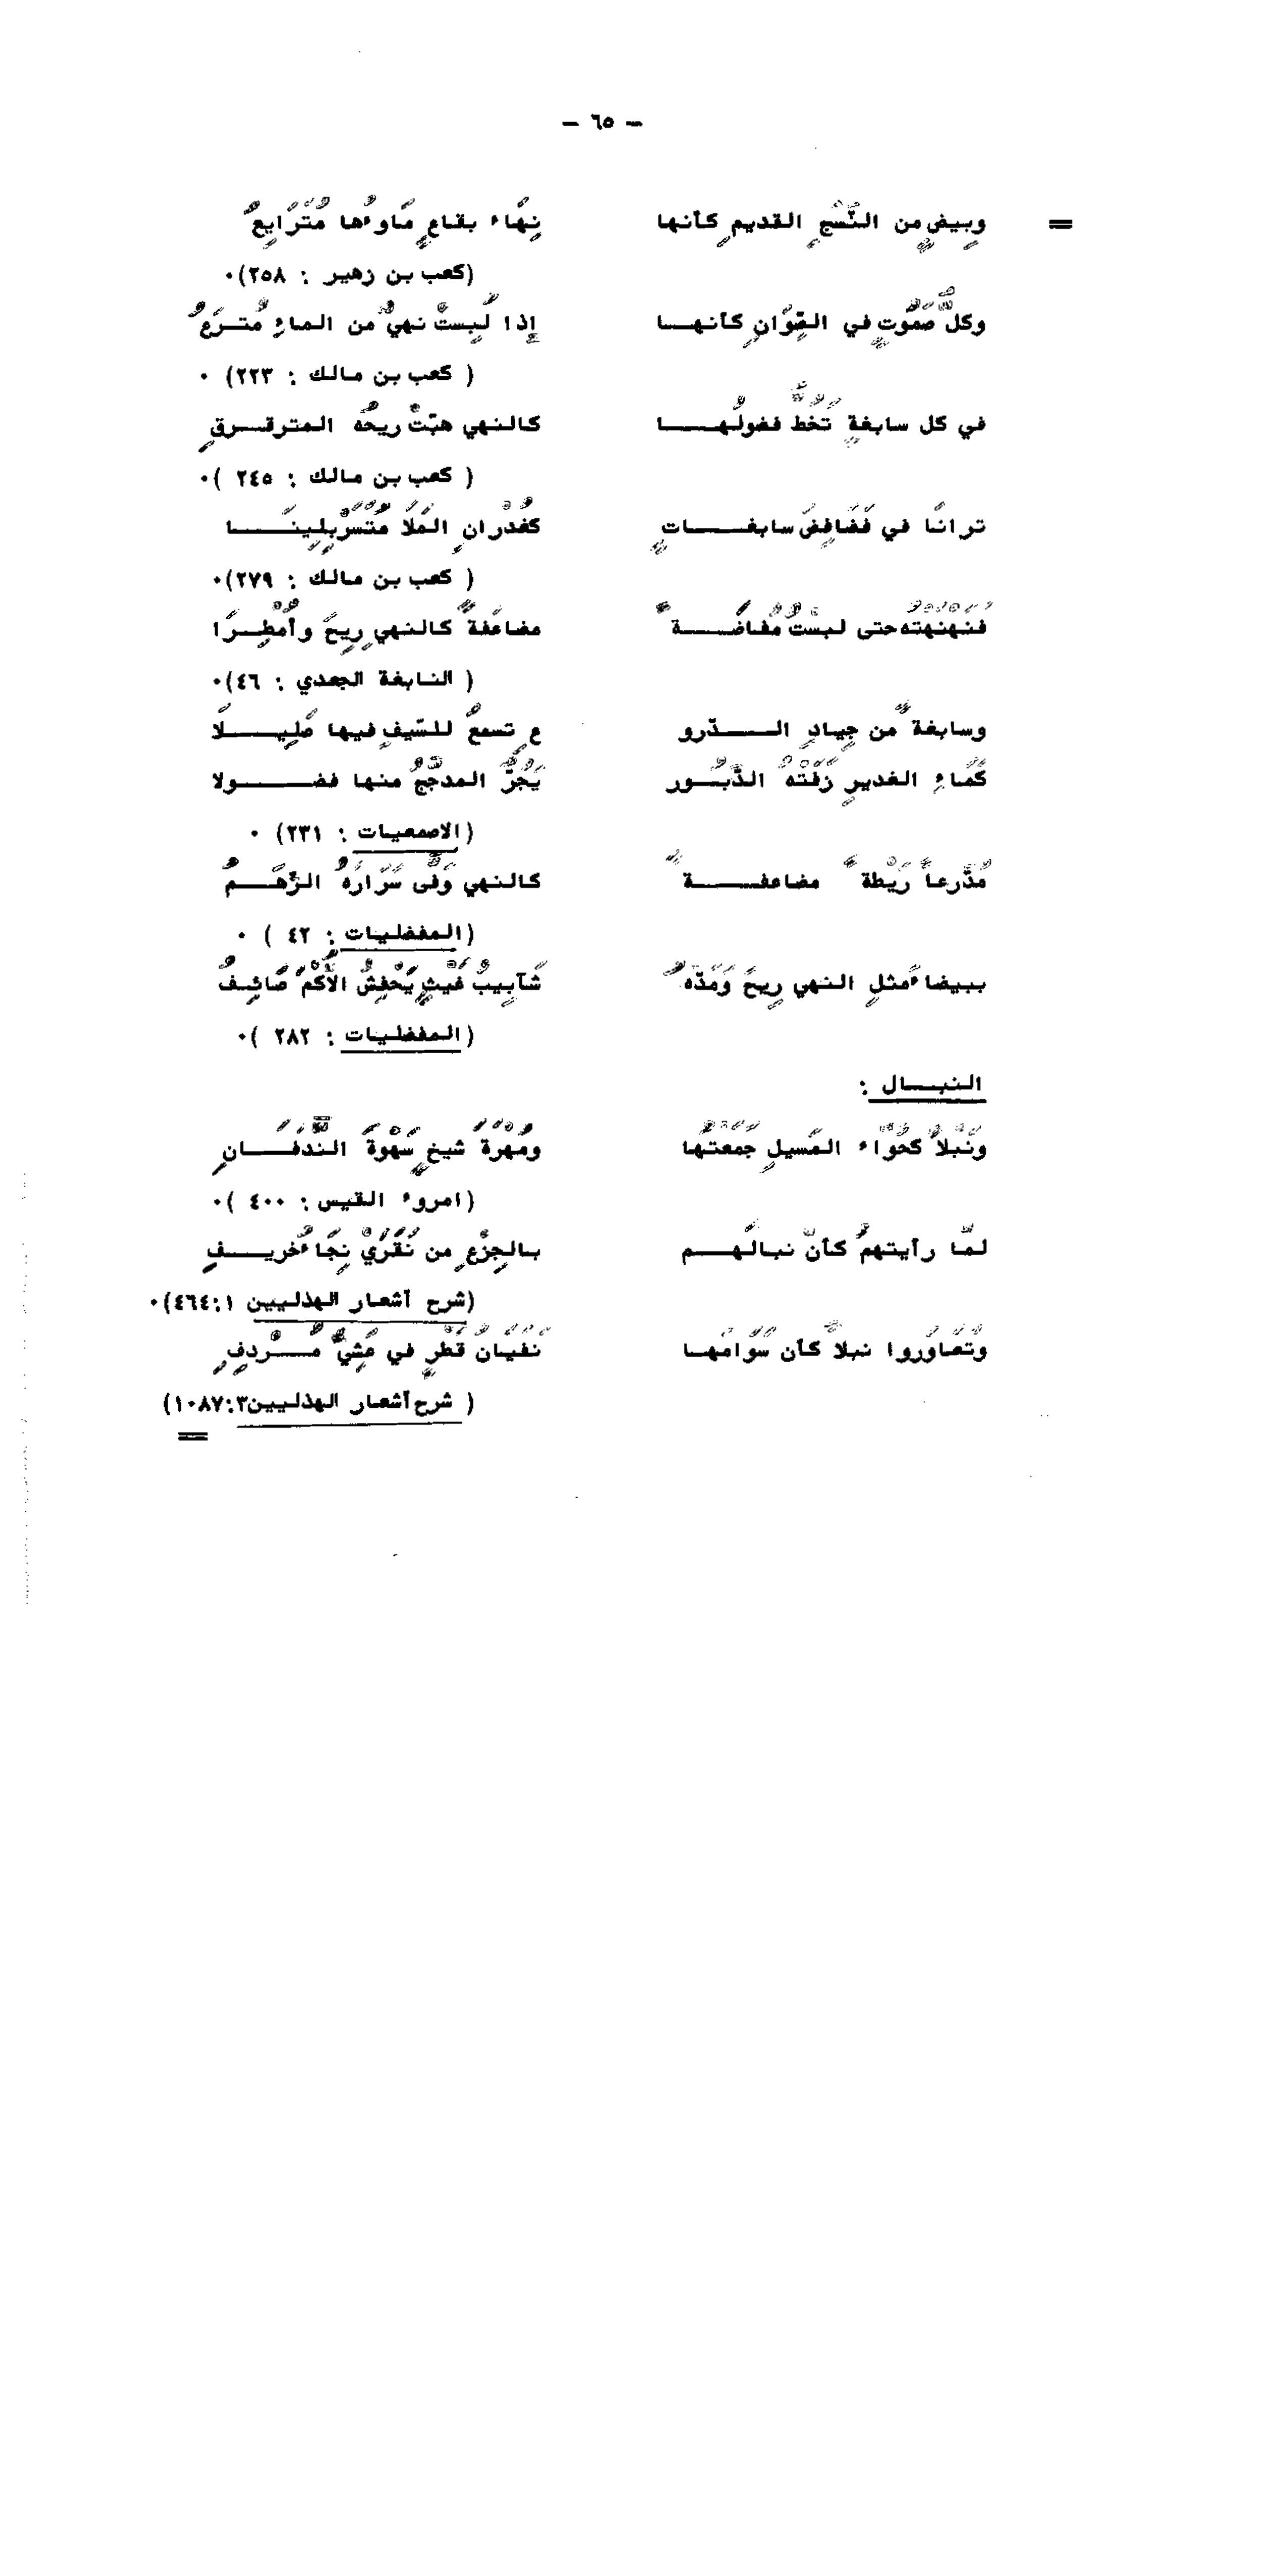 - ٦٥ -
= وبيضٍ من النَّسْجِ القديمِ كأنها نِهَاء بقاعٍ مَاوءُها مُتَرَايِعُ
(كعب بن زهير : ٢٥٨)٠
وكلُّ صَمُوتٍ في الصِّوَانِ كأنهـــا إِذا لُبِستْ نهيٌ من الماءِ مُتــرَعُ
( كعب بن مالك : ٢٢٣) ٠
في كل سابغةٍ تَخُطُّ فضولُهـــــا كالنهي هبّتْ ريحُهُ المترقـــرقِ
( كعب بن مالك : ٢٤٥ )٠
ترانَا في فَضَافِضَ سابغـــــاتٍ كغُدْرانِ المَلَا مُتَسَرْبِلِينَـــــا
( كعب بن مالك : ٢٧٩)٠
فنهنهته حتى لبسْتُ مُفَاضَـــــةً مضاعَفةً كالنهيِ رِيحَ وأُمْطِــرَا
( النابغة الجعدي : ٤٦)٠
وسابغةً من جِيادِ الـــــدّرو عِ تسمعُ للسّيفِ فيها صَلِيـــــلَا
كَمَاءِ الغديرِ زَفَتْهُ الدَّبُـــور يَجُرُّ المدجَّجُ منها فضـــــولا
(الاصمعيات : ٢٣١) ٠
مُدَّرعاً رَيْطةً مضاعفـــــةً كالنهي وَفَّى سَرَارَهُ الرِّهَـــمُ
(المفضليات : ٤٢ ) ٠
ببيضاءَ مثلِ النهي رِيحَ وَمَدَّهُ شَآبِيبُ غَيْثٍ يَحْفِشُ الأُكْمَ صَائِفُ
(المفضليات : ٢٨٢ )٠
النبـــال :
ونَبْلاً كحُوَّاء المَسيلِ جمعتُها ومُهْرةَ شيخٍ سَهْوةَ الندفـــانِ
(امروء القيس : ٤٠٠ )٠
لمّا رأيتهمُ كأنّ نبالَهـــم بالجِزْعِ من نَقَرَىْ نِجَاءُ خريـــفِ
(شرح أشعار الهذليين ١:‏٤٦٤)٠
وتَعَاوَروا نبلاً كأن سَوَامَهـا نَفَيَان قَطْرٍ في عَشِيٍّ مُـــردفِ
( شرح أشعار الهذليين٣:‏١٠٨٧)
=